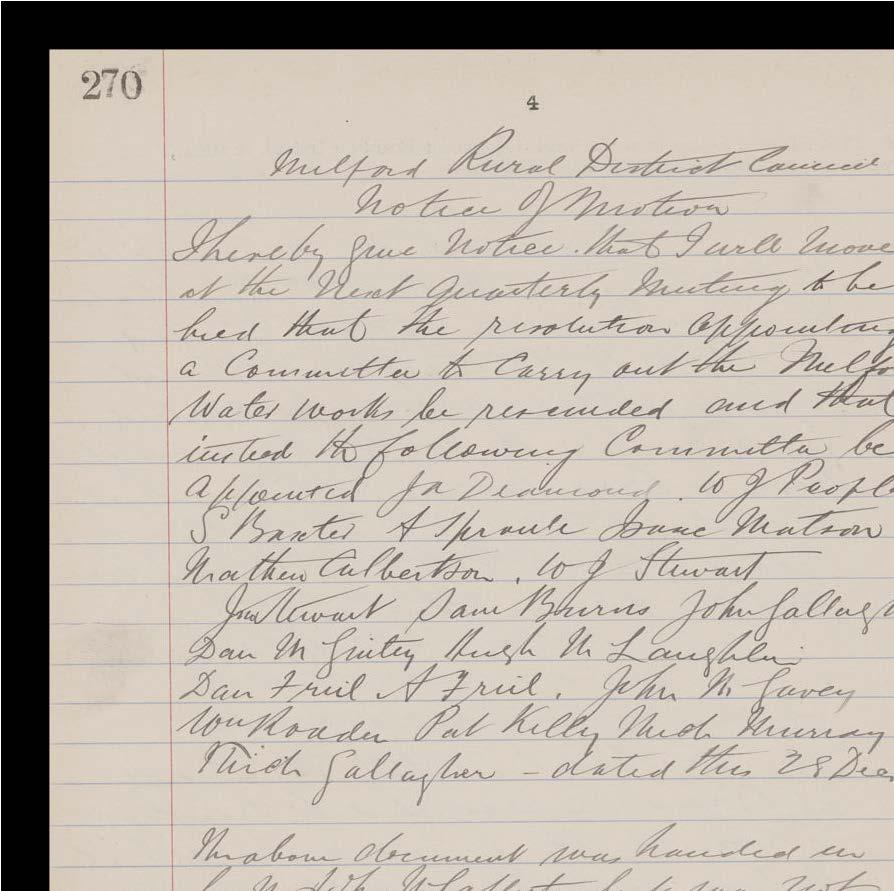 270
4
Milford Rural District Council
Notice of Motion
I hereby give Notice that I will move
at the Next Quarterly Meeting to be
held that the resolution appointing
a Committee to Carry out the Milfo
Water works be rescinded and that
instead the following Committee be
appointed Jn Deamond. W J Peopl
S Baxter A Sproule Isaac Watson
Mathew Culbertson, W J Stewart
Jno Stewart Sam Burns John Gallagh
Dan McGinley Hugh McLaughlin
Dan Friel A Friel, John McGavey
Wm Roaden Pat Kelly Mich Murray
Mich Gallagher – dated this 28 Dec
The above document was handed in